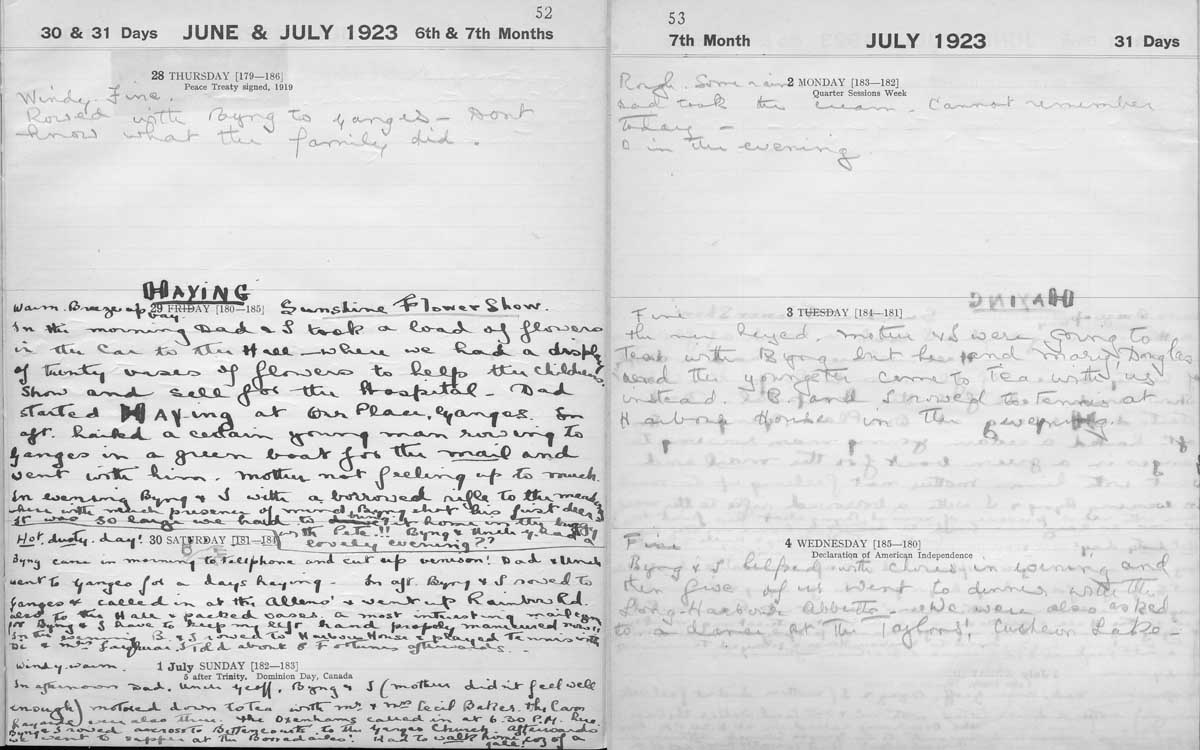 52
30 & 31 Days JUNE & JULY 1923 6th & 7th Months
28 THURSDAY [179—186]
Peace Treaty signed, 1919
Windy, Fine.
Rowed with Byng to Ganges — Dont
know what the family did.
HAYING
Warm. Breeze up bay. 29 FRIDAY [180—185] Sunshine Flower Show.
In the morning Dad & I took a load of flowers
in the Car to the Hall — where we had a display
of twenty vases of flowers to help the Childrens
Show and sell for the Hospital — Dad
started HAYing at Our Place, Ganges. In
aft. hailed a certain young man rowing to
Ganges in a green boat for the mail and
went with him. Mother not feeling up to much.
In evening Byng & I with a borrowed rifle to the meadow
where with much presence of mind Byng shot his first deer
It was so large we had to bring it home in the buggy
with Pete!! Byng & Uncle G had a
lovely evening??
Hot, dusty. day! 30 SATURDAY [181—184]
Byng came in morning to telephone and cut up venison! Dad & Uncle
went to Ganges for a days haying. In aft. Byng & I rowed to
Ganges & called in at the Allens' & went up Rainbow Rd.
also to the Hall & packed vases. a most interesting mail
for Byng & I have to keep my left hand properly manicured now!
In the evening B. & I rowed to Harbour House & played Tennis with
Di & Mrs I told about 8 Fortunes afterwards.
Windy. warm. 1 July SUNDAY [182—183]
5 after Trinity. Dominion Day, Canada
In afternoon Dad, Uncle Geoff, Byng & I (mother didnt feel well
enough) motored down to tea with Mr & Mrs Cecil Baker. The Capn
were also there. The Oxenhams called in at 6.30 P.M.
Byng & I rowed across to to the Ganges Church. Afterwards
we went to supper at the Had to walk home coz of a
gale!
53
7th Month JULY 1923 31 Days
2 MONDAY [183—182]
Quarter Sessions Week
Rough. Some rain
Dad took the cream. Cannot remember
today —
in the evening
3 TUESDAY [184—181]
Fine
The men hayed. Mother & I were going to
Tea with Byng but he and Mary Douglas
and the youngster came to Tea with us
instead. B. and I rowed to tennis at
Harbour House in the evening.
4 WEDNESDAY [185—180]
Declaration of American Independence
Fine
Byng & I helped with chores in evening and
then five of us went to dinner with the
Long Harbour Abbotts. We were also asked
to a dance at the Taylors', Cusheon Lake —